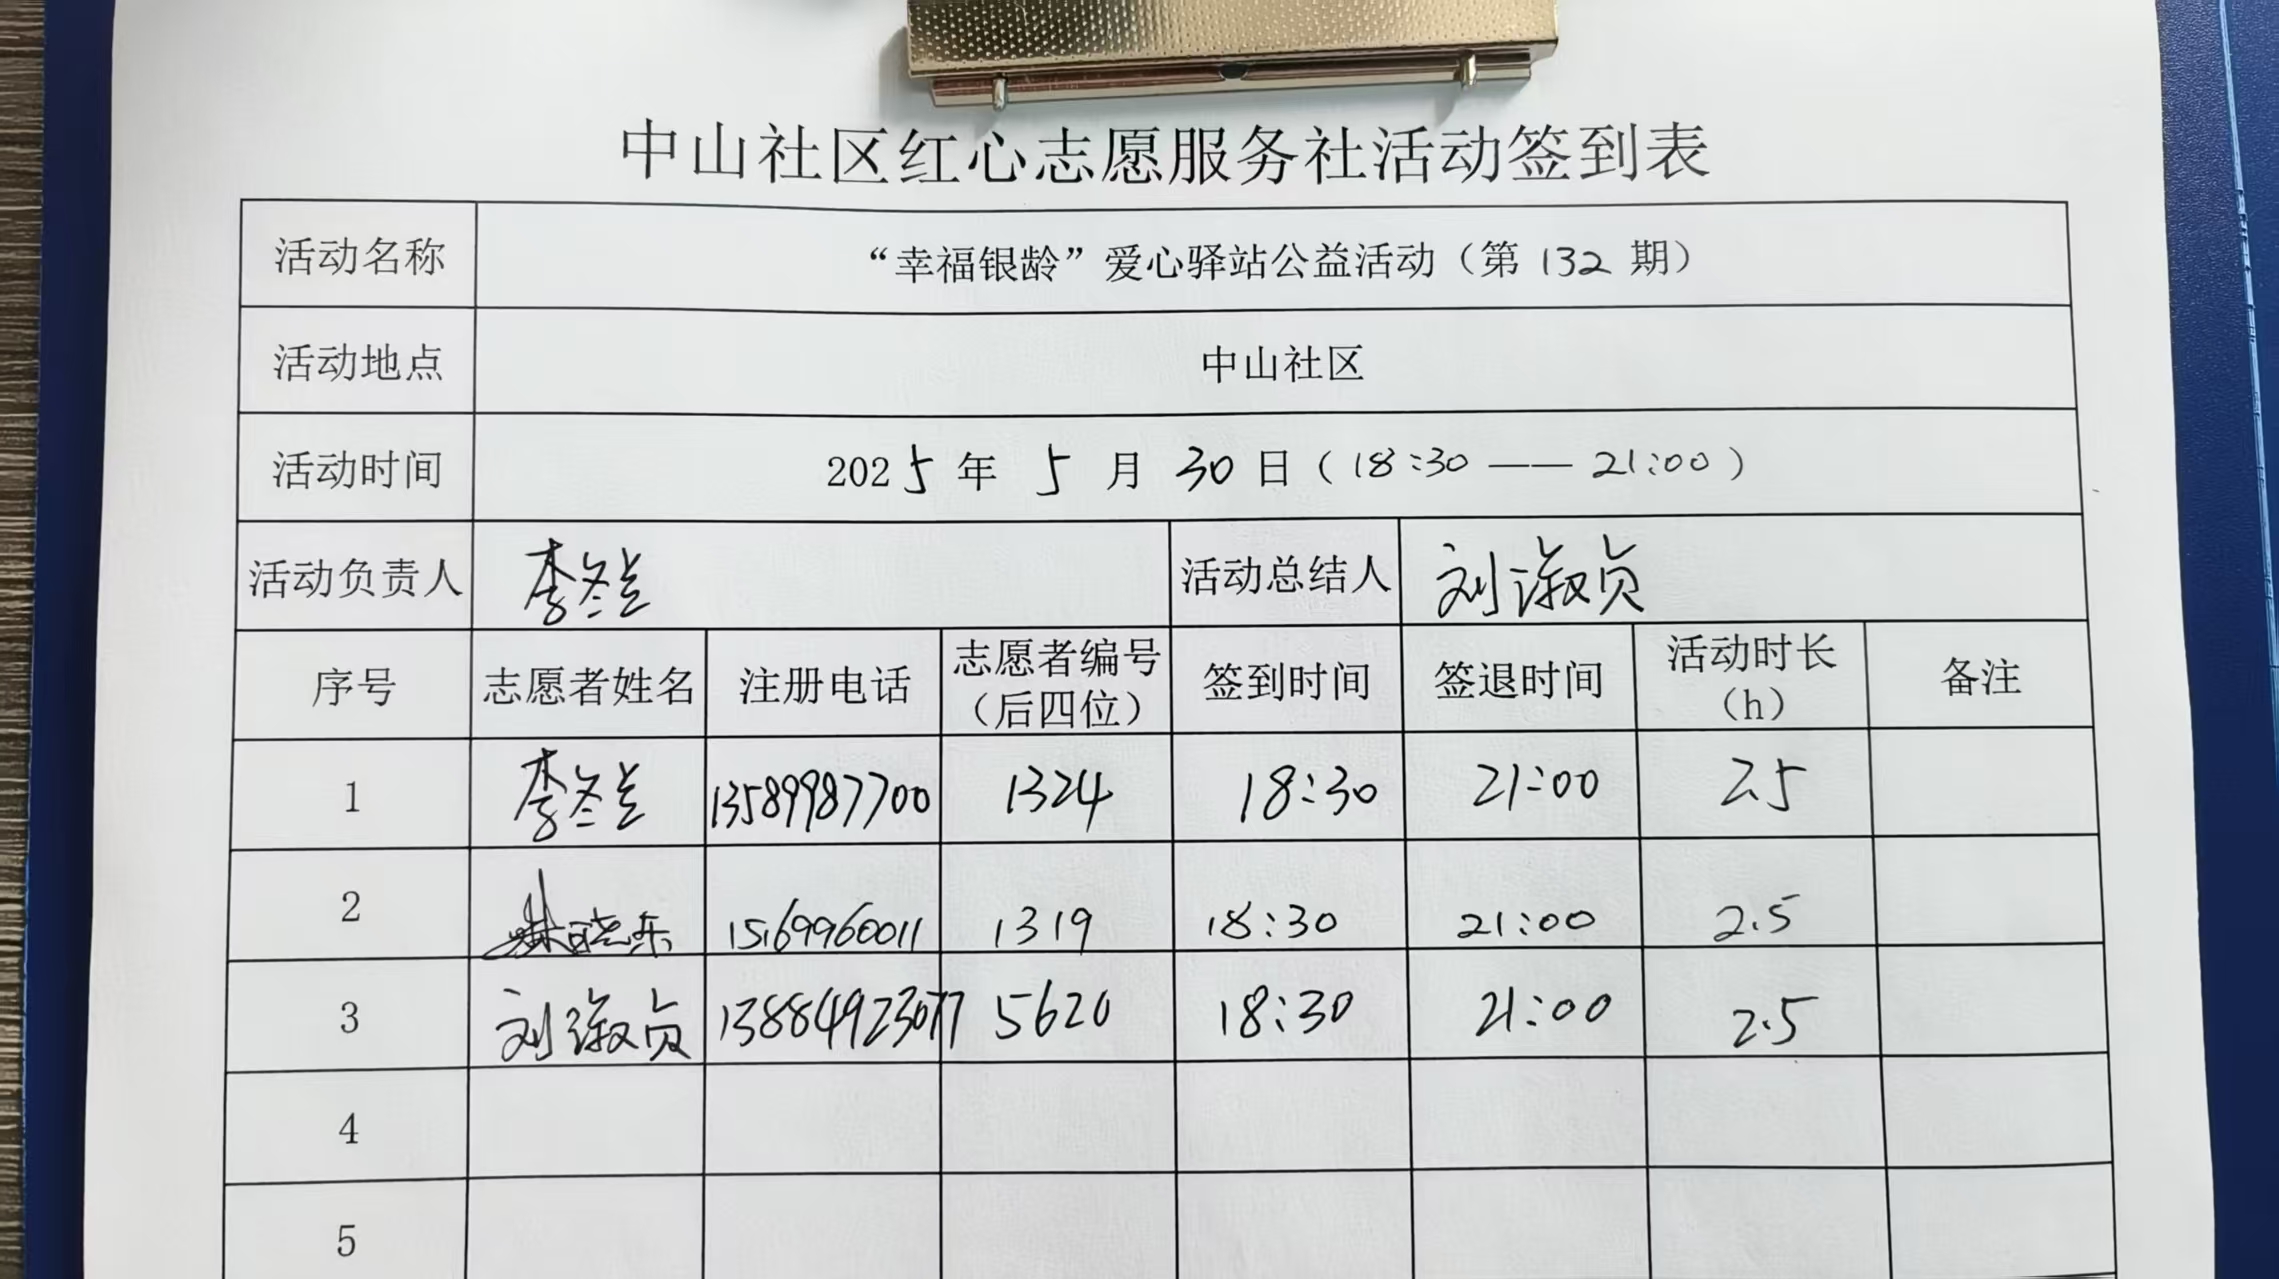 中山社区红心志愿服务社活动签到表
活动名称 “幸福银龄”爱心驿站公益活动（第 132 期）
活动地点 中山社区
活动时间 2025 年 5 月 30 日（18:30 —— 21:00）
活动负责人 李冬兰 活动总结人 刘淑贞
序号 志愿者姓名 注册电话 志愿者编号（后四位） 签到时间 签退时间 活动时长（h） 备注
1 李冬兰 13589987700 1324 18:30 21:00 2.5
2 晓东 15169960011 1319 18:30 21:00 2.5
3 刘淑贞 13884923077 5620 18:30 21:00 2.5
4
5